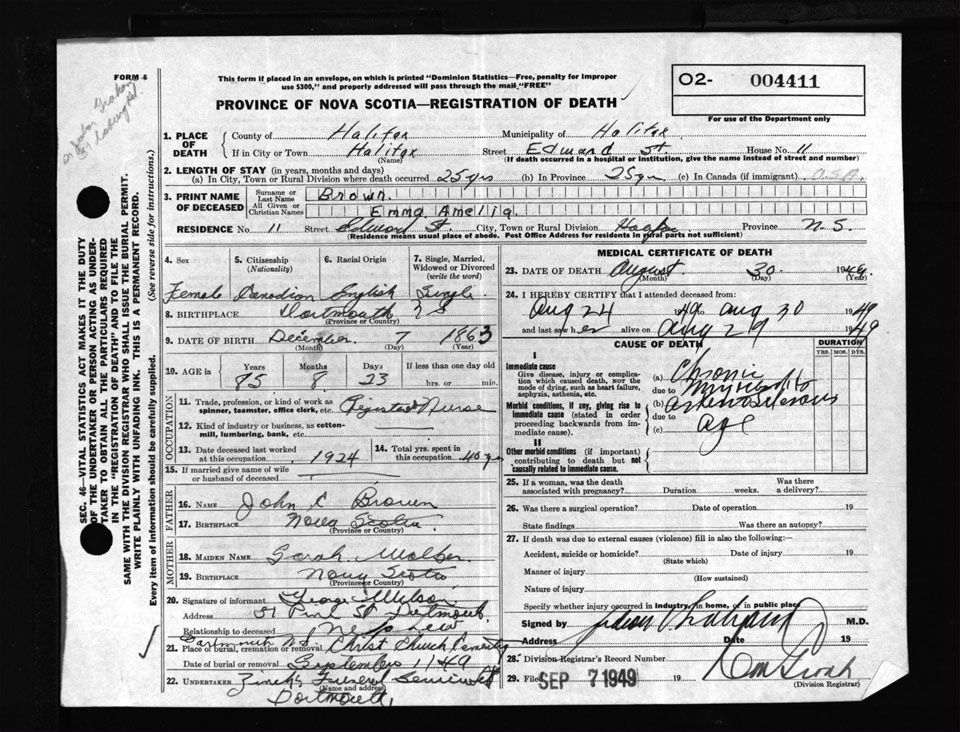 FORM 6
This form if placed in an envelope, on which is printed "Dominion Statistics—Free, penalty for improper
use $300," and properly addressed will pass through the mail "FREE"
PROVINCE OF NOVA SCOTIA—REGISTRATION OF DEATH
O2- 004411
For use of the Department only
SEC. 46—VITAL STATISTICS ACT MAKES IT THE DUTY
OF THE UNDERTAKER OR PERSON ACTING AS UNDER-
TAKER TO OBTAIN ALL THE PARTICULARS REQUIRED
IN THE "REGISTRATION OF DEATH" AND TO FILE THE
SAME WITH THE DIVISION REGISTRAR WHO SHALL ISSUE THE BURIAL PERMIT.
WRITE PLAINLY WITH UNFADING INK. THIS IS A PERMANENT RECORD.
Every item of information should be carefully supplied. (See reverse side for instructions.)
1. PLACE OF DEATH
County of Halifax Municipality of Halifax
If in City or Town Halifax Street Edward St. House No. 11
(Name) (If death occurred in a hospital or institution, give the name instead of street and number)
2. LENGTH OF STAY (in years, months and days)
(a) In City, Town or Rural Division where death occurred 25 yrs (b) In Province 25 yrs (c) In Canada (if immigrant)
3. PRINT NAME OF DECEASED
Surname or Last Name Brown.
All Given or Christian Names Emma Amelia.
RESIDENCE No. 11 Street Edward St. City, Town or Rural Division Halifax Province N.S.
(Residence means usual place of abode. Post Office Address for residents in rural parts not sufficient)
4. Sex 5. Citizenship (Nationality) 6. Racial Origin 7. Single, Married, Widowed or Divorced (write the word)
Female Canadian English Single
8. BIRTHPLACE Dartmouth N S
(Province or Country)
9. DATE OF BIRTH December 7 1863
(Month) (Day) (Year)
10. AGE in Years Months Days If less than one day
85 8 23 hrs. or min.
OCCUPATION
11. Trade, profession, or kind of work as
spinner, teamster, office clerk, etc. Registered Nurse
12. Kind of industry or business, as cotton-
mill, lumbering, bank, etc.
13. Date deceased last worked
at this occupation 1924
14. Total yrs. spent in
this occupation 40 yrs
15. If married give name of wife
or husband of deceased
FATHER
16. NAME John C Brown
17. BIRTHPLACE Nova Scotia
(Province or Country)
MOTHER
18. MAIDEN NAME Sarah Walker
19. BIRTHPLACE Nova Scotia
(Province or Country)
20. Signature of informant George Wilson
Address 51 Pine St Dartmouth
Relationship to deceased Nephew
Dartmouth N.S.
21. Place of burial, cremation or removal Christ Church Cemetery
Date of burial or removal September 1 1949
22. UNDERTAKER Zinck's Funeral Service
(Name and address)
Dartmouth,
MEDICAL CERTIFICATE OF DEATH
23. DATE OF DEATH August 30 1949
(Month) (Day) (Year)
24. I HEREBY CERTIFY that I attended deceased from:
Aug 24 1949 to Aug 30 1949
and last saw her alive on Aug 29 1949
CAUSE OF DEATH DURATION
YRS. MOS. DYS.
I
Immediate cause
Give disease, injury or complica-
tion which caused death, NOT the
mode of dying, such as heart failure,
asphyxia, asthenia, etc.
(a) Chronic
Myocarditis
due to
Morbid conditions, if any, giving rise to
immediate cause (stated in order
proceeding backwards from im-
mediate cause).
(b) arteriosclerosis
due to
(c) age
II
Other morbid conditions (if important)
contributing to death but not
causally related to immediate cause.
25. If a woman, was the death
associated with pregnancy? Duration weeks. Was there
a delivery?
26. Was there a surgical operation? Date of operation 19
State findings Was there an autopsy?
27. If death was due to external causes (violence) fill in also the following:
Accident, suicide or homicide? Date of injury 19
(State which)
Manner of injury
(How sustained)
Nature of injury
Specify whether injury occurred in industry, in home, or in public place
Signed by Judson Graham M.D.
Address Date 19
28. Division Registrar's Record Number
29. Filed SEP 7 1949 19
(Division Registrar)